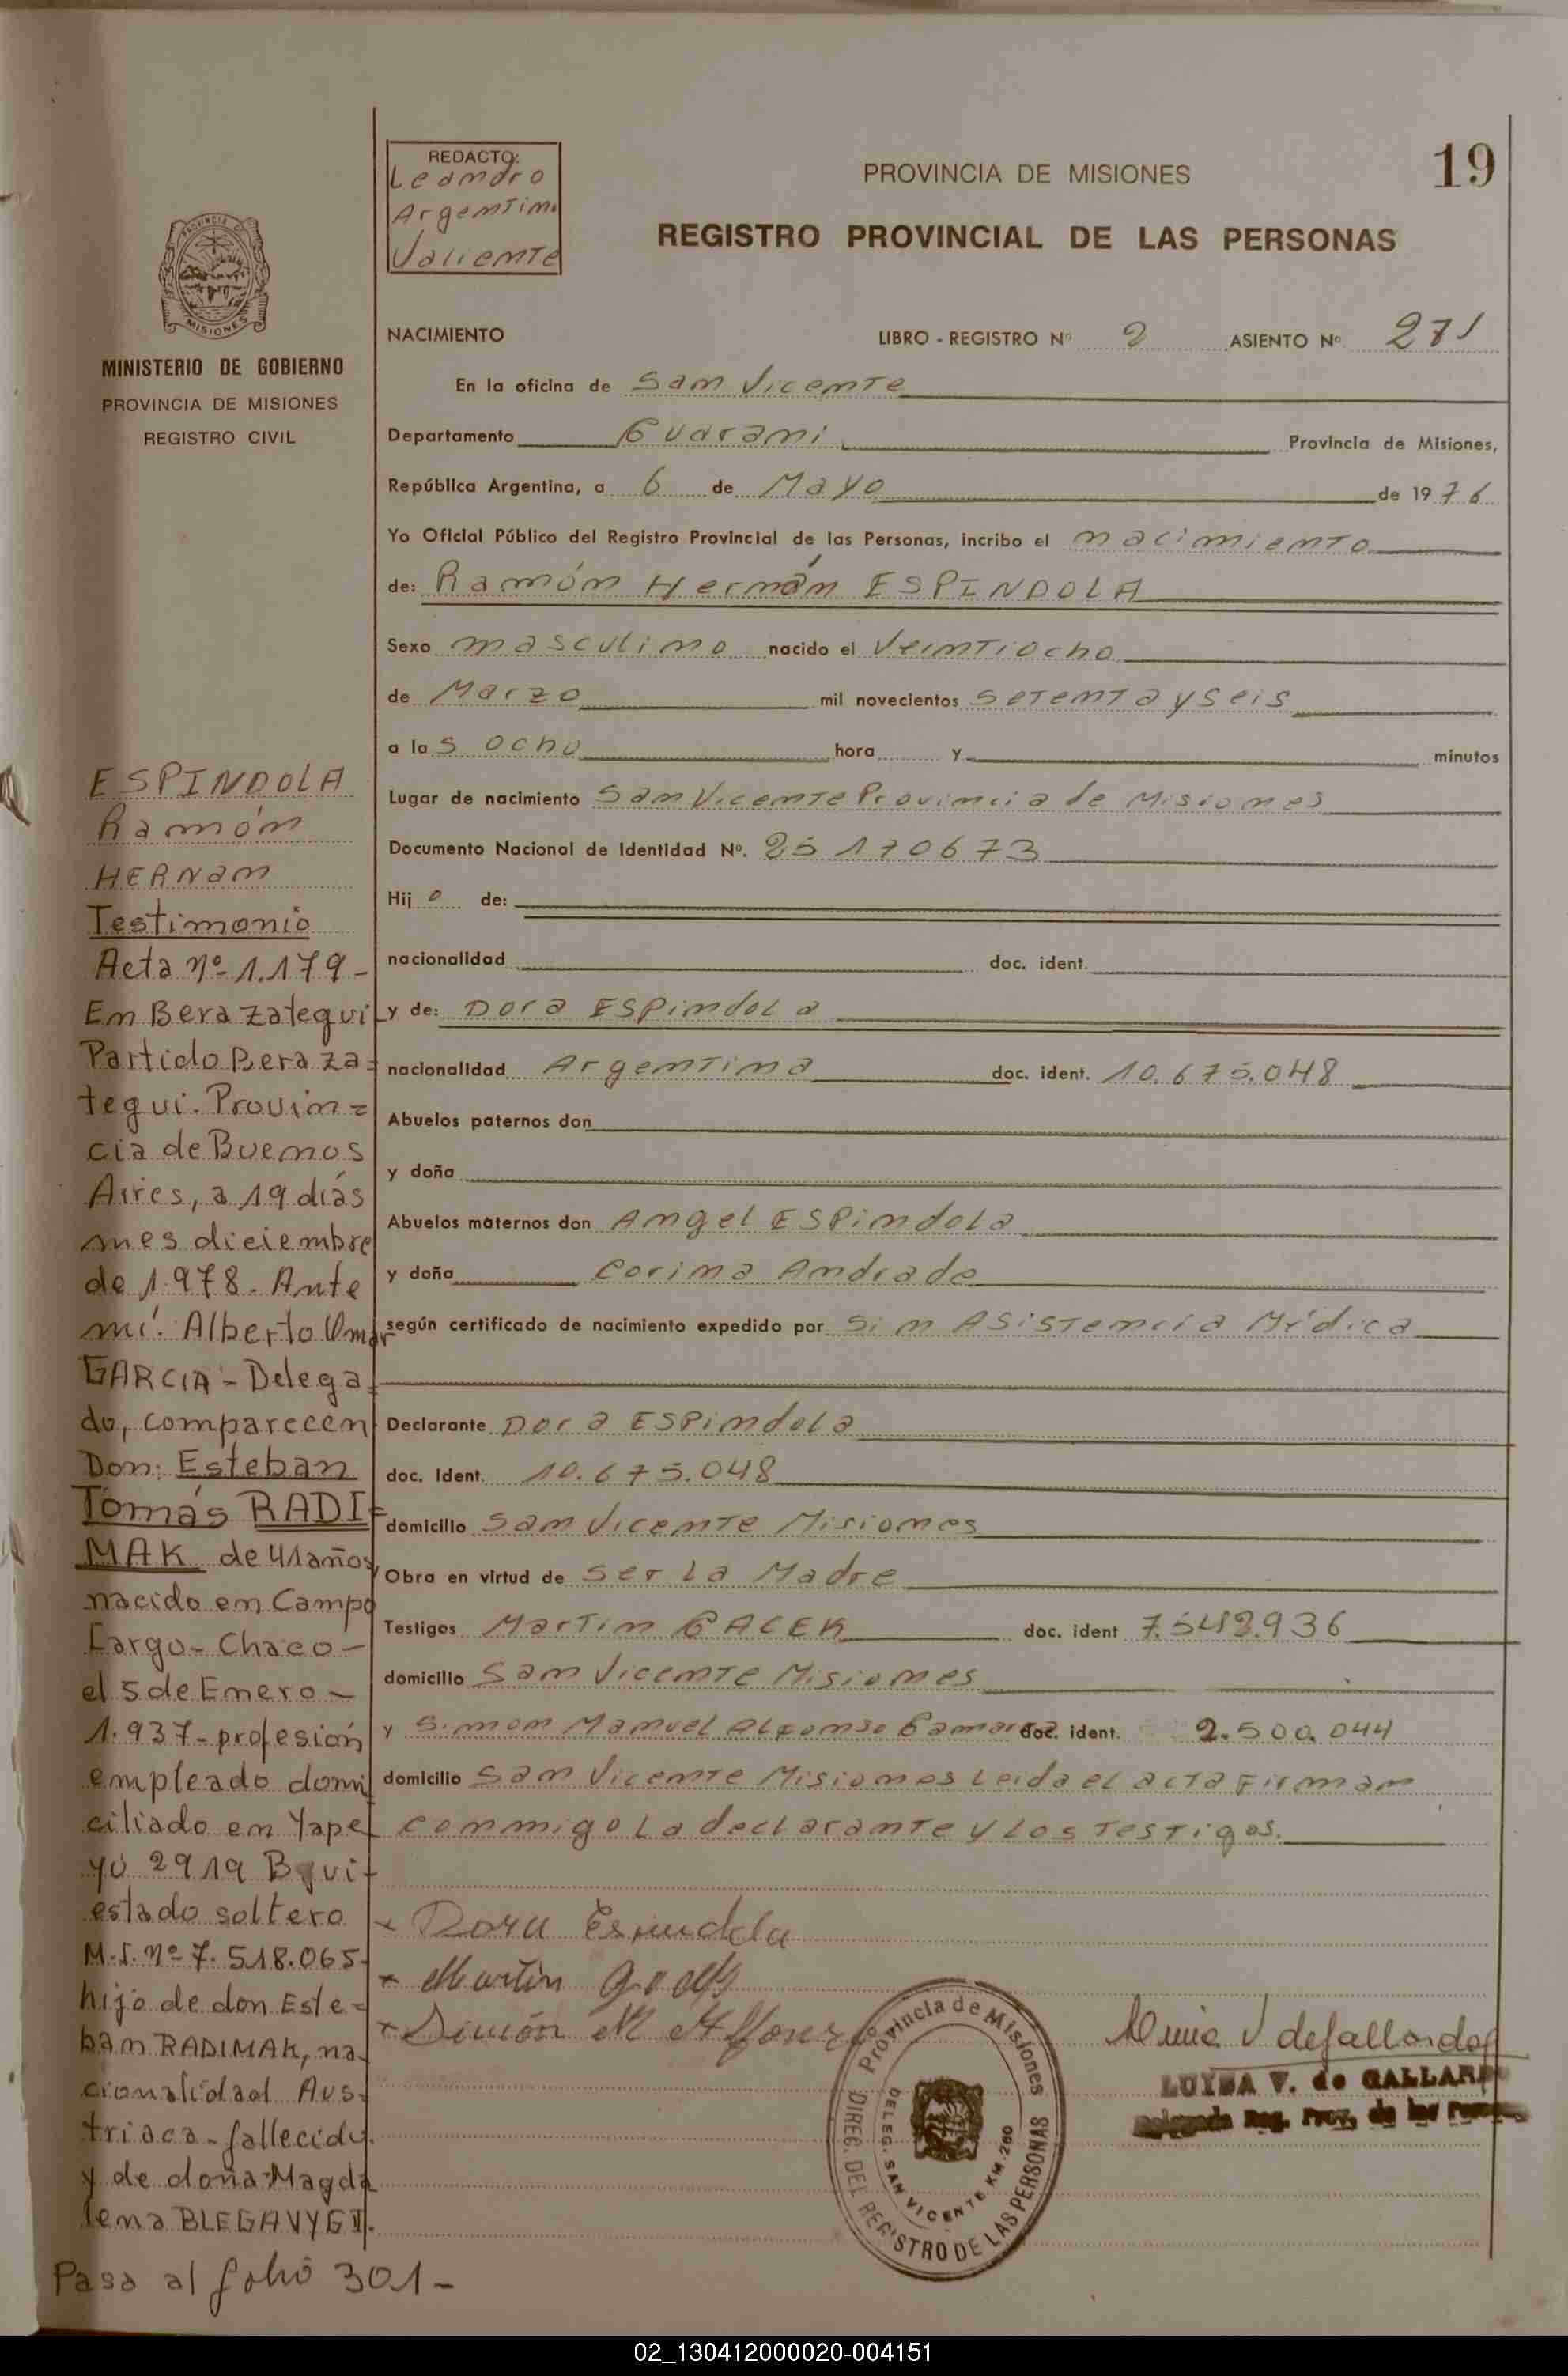 REDACTO:
Leandro
Argentino
Valiente
PROVINCIA DE MISIONES
19
REGISTRO PROVINCIAL DE LAS PERSONAS
PROVINCIA DE
MISIONES
MINISTERIO DE GOBIERNO
PROVINCIA DE MISIONES
REGISTRO CIVIL
NACIMIENTO LIBRO - REGISTRO Nº 2 ASIENTO Nº 271
En la oficina de San Vicente
Departamento Guarani Provincia de Misiones,
República Argentina, a 6 de Mayo de 1976
Yo Oficial Público del Registro Provincial de las Personas, incribo el nacimiento
de: Ramón Hernán ESPINDOLA
Sexo masculino nacido el Veintiocho
de Marzo mil novecientos setenta y seis
a las ocho hora y minutos
Lugar de nacimiento San Vicente Provincia de Misiones
Documento Nacional de Identidad Nº. 25170673
Hijo de:
nacionalidad doc. ident.
y de: Dora ESPindola
nacionalidad Argentina doc. ident. 10.675.048
Abuelos paternos don
y doña
Abuelos maternos don Angel ESPindola
y doña Corina Andrade
según certificado de nacimiento expedido por Sin Asistencia Médica
Declarante Dora ESPindola
doc. Ident. 10.675.048
domicilio San Vicente Misiones
Obra en virtud de Ser La Madre
Testigos Martin GACEK doc. ident 7.548.936
domicilio San Vicente Misiones
y Simon Manuel Alfonso doc. ident. 2.500.044
domicilio San Vicente Misiones Leida el acta Firman
conmigo La declarante y Los Testigos.
Dora Espindola
Martin
Simón M Alfonso
Provincia de Misiones
DIREC. DEL REGISTRO DE LAS PERSONAS
DELEG. SAN VICENTE KM. 260
Luisa V de Gallardo
LUISA V. de GALLARDO
Delegada Reg. Prov. de las Personas
ESPINDOLA
Ramón
HERNan
Testimonio
Acta nº 1.179-
En Berazategui
Partido Beraza=
tegui. Provin=
cia de Buenos
Aires, a 19 días
mes diciembre
de 1.978. Ante
mí. Alberto Omar
GARCIA - Delega=
do, comparecen
Don: Esteban
Tomás RADI=
MAK de 41 años,
nacido en Campo
Largo - Chaco -
el 5 de Enero -
1.937 - profesión
empleado domi
ciliado en Yape
yú 2919 Bqui-
estado soltero
M.I. nº 7.518.065-
hijo de don Este=
ban RADIMAK, na-
cionalidad Aus-
triaca - fallecido.
y de doña Magda
lena BLEGAVYGII.
Pasa al folio 301-
02_130412000020-004151